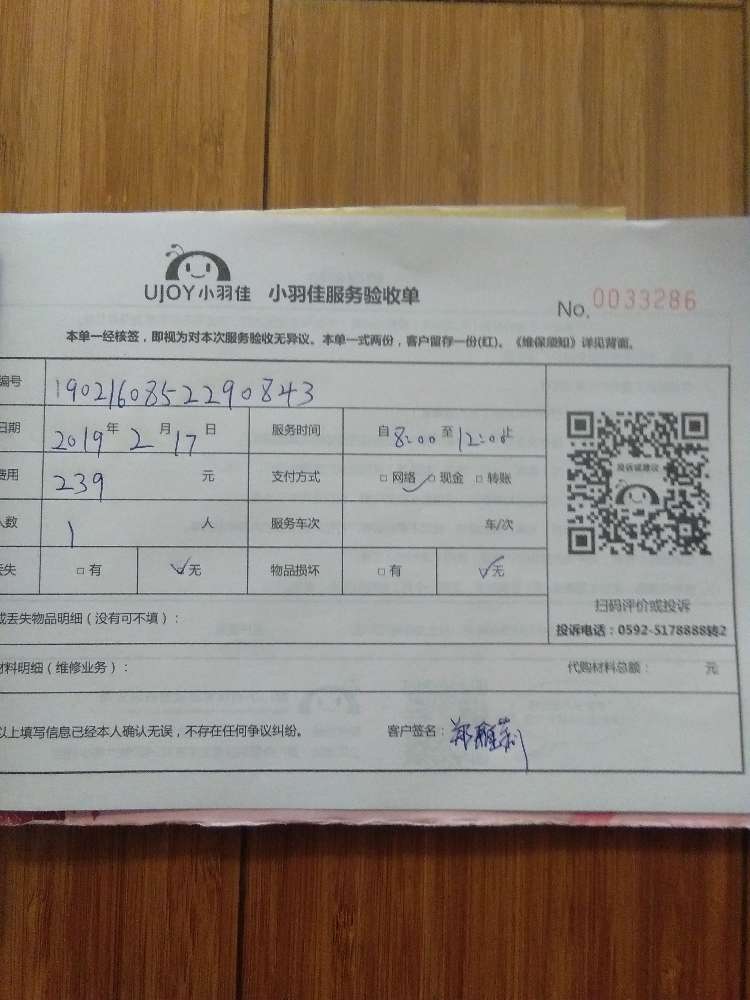 UJOY小羽佳 小羽佳服务验收单
No. 0033286
本单一经核签，即视为对本次服务验收无异议。本单一式两份，客户留存一份(红)。《维保须知》详见背面。
编号 1902160852290843
日期 2019年2月17日 服务时间 自8:00至12:00止
费用 239 元 支付方式 □网络 □现金 □转账
人数 1 人 服务车次 车/次
丢失 □有 无 物品损坏 □有 无
投诉或建议
扫码评价或投诉
投诉电话：0592-5178888转2
或丢失物品明细（没有可不填）：
材料明细（维修业务）： 代购材料总额： 元
以上填写信息已经本人确认无误，不存在任何争议纠纷。 客户签名：